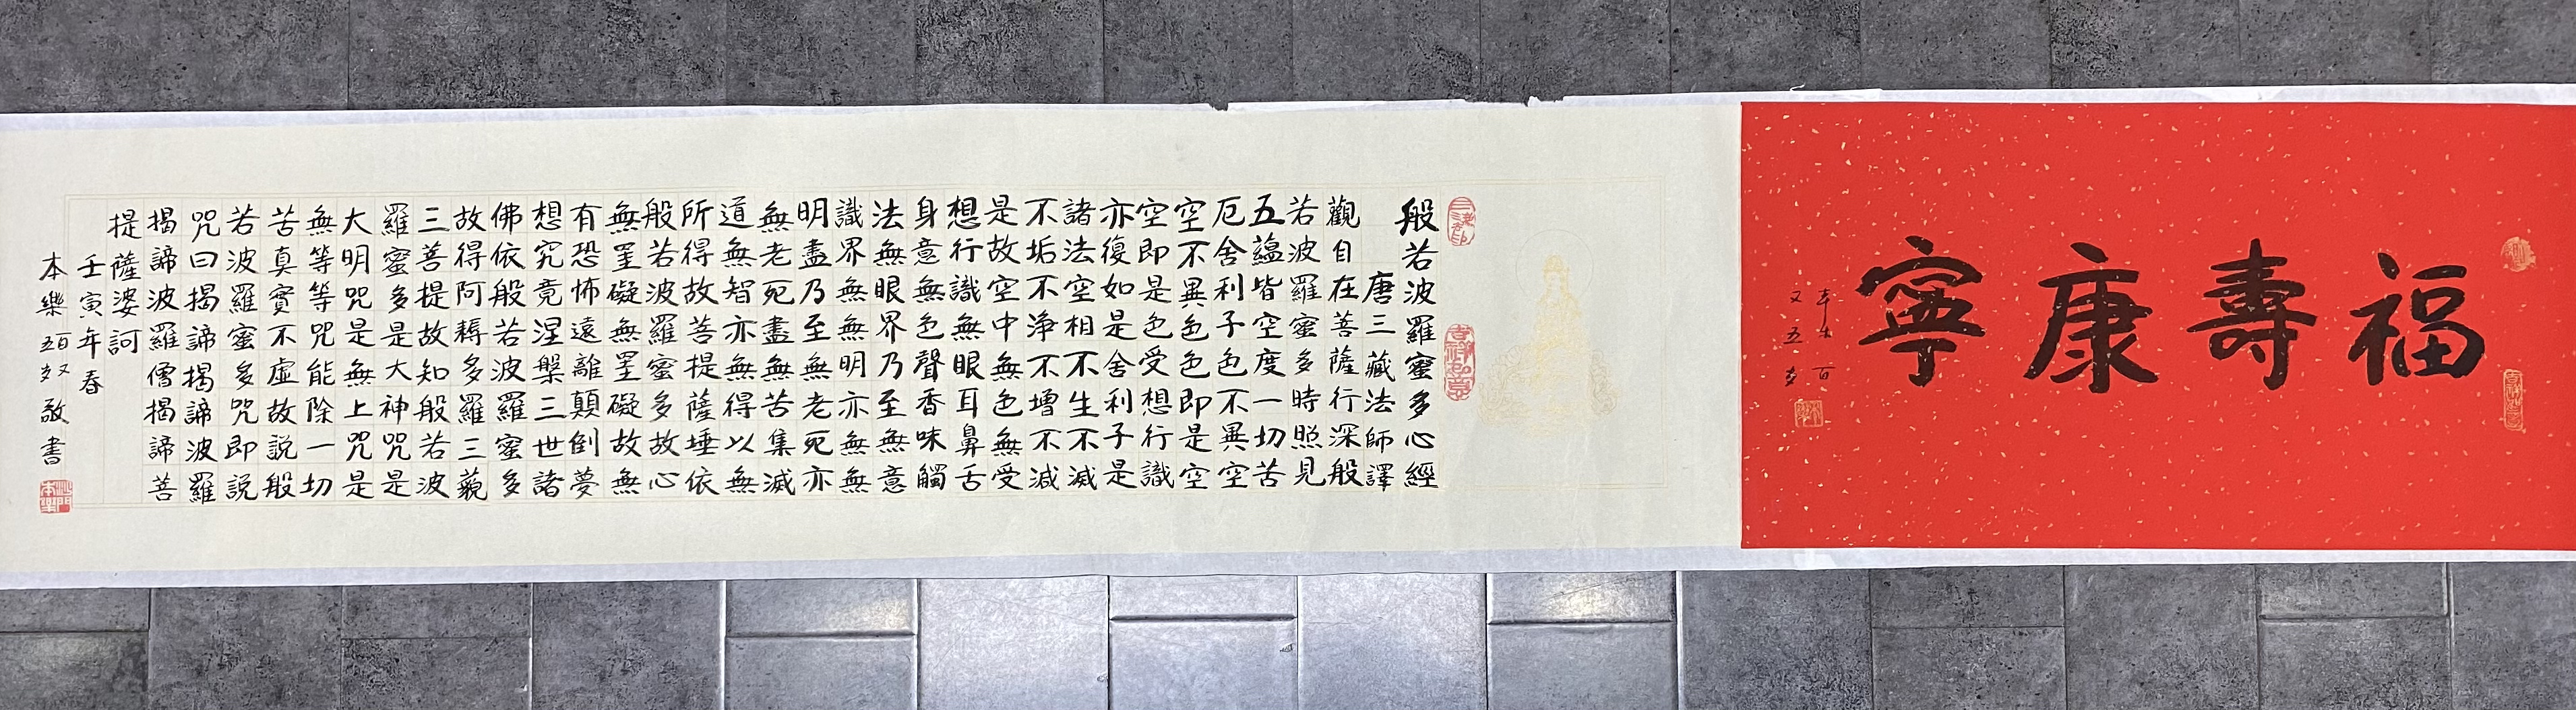 福壽康寧
本樂百
又五岁
吉祥如意
般若波羅蜜多心經
唐三藏法師譯
觀自在菩薩行深般
若波羅蜜多時照見
五蘊皆空度一切苦
厄舍利子色不異空
空不異色色即是空
空即是色受想行識
亦復如是舍利子是
諸法空相不生不滅
不垢不淨不增不減
是故空中無色無受
想行識無眼耳鼻舌
身意無色聲香味觸
法無眼界乃至無意
識界無無明亦無無
明盡乃至無老死亦
無老死盡無苦集滅
道無智亦無得以無
所得故菩提薩埵依
般若波羅蜜多故心
無罣礙無罣礙故無
有恐怖遠離顛倒夢
想究竟涅槃三世諸
佛依般若波羅蜜多
故得阿耨多羅三藐
三菩提故知般若波
羅蜜多是大神咒是
大明咒是無上咒是
無等等咒能除一切
苦真實不虛故說般
若波羅蜜多咒即說
咒曰揭諦揭諦波羅
揭諦波羅僧揭諦菩
提薩婆訶
壬寅年春
本樂百五岁敬書
沙門本樂